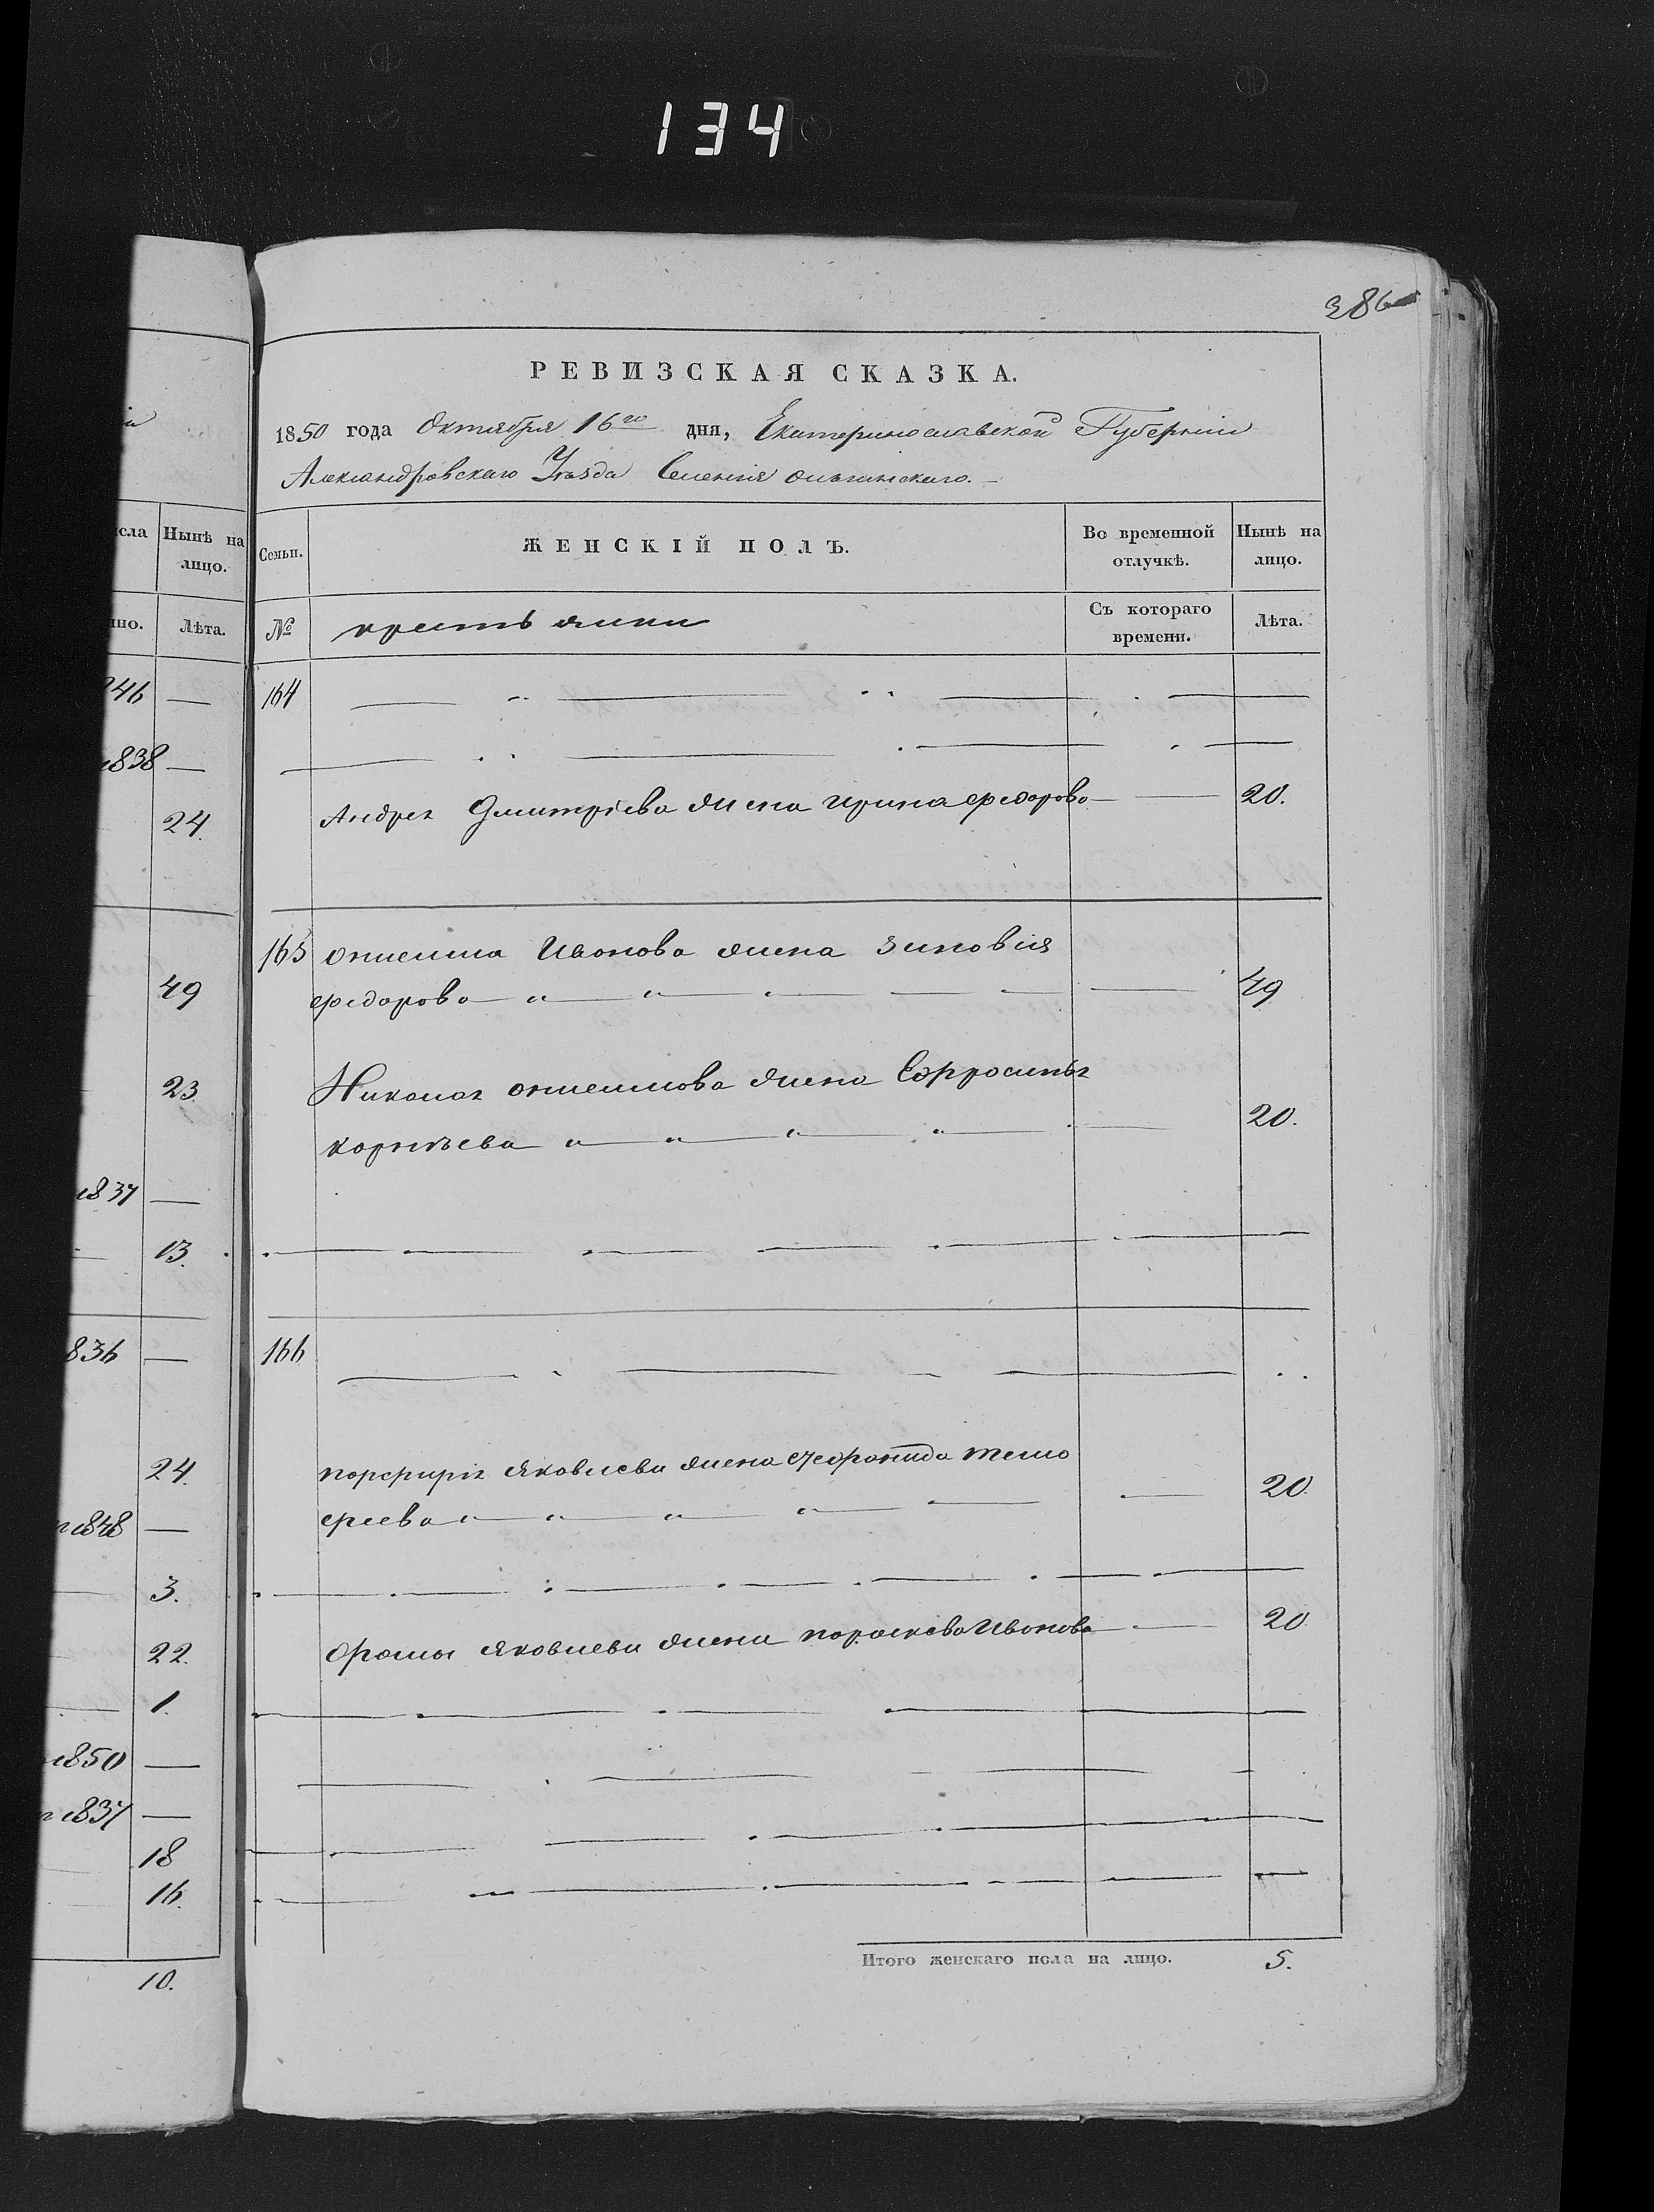 134
386
РЕВИЗСКАЯ СКАЗКА.
1850 года Октября 16го дня, Екатеринославской Губерніи
Александровскаго Уѣзда Селенія ольгинскаго.
исла
Нынѣ на лицо.
Семьи.
ЖЕНСКІЙ ПОЛЪ.
Во временной отлучкѣ.
Нынѣ на лицо.
но.
Лѣта.
№
крестьянки
Съ котораго времени.
Лѣта.
246 —
164
1838 —
24.
Андрея Дмитріева жена ирина федорова — 20.
165 онисима Иванова жена зиновия
49
федорова — 49
23
Николая онисимова жена Ефросинья
корнѣева 20.
1837 —
13.
836 —
166
24.
порфирія яковлева жена Агафонида тимо
феева 20.
1848 —
3.
22.
фомы яковлева жена парасковa Иванова — 20.
1.
1850 —
1837 —
18
16.
Итого женскаго пола на лицо. 5.
10.